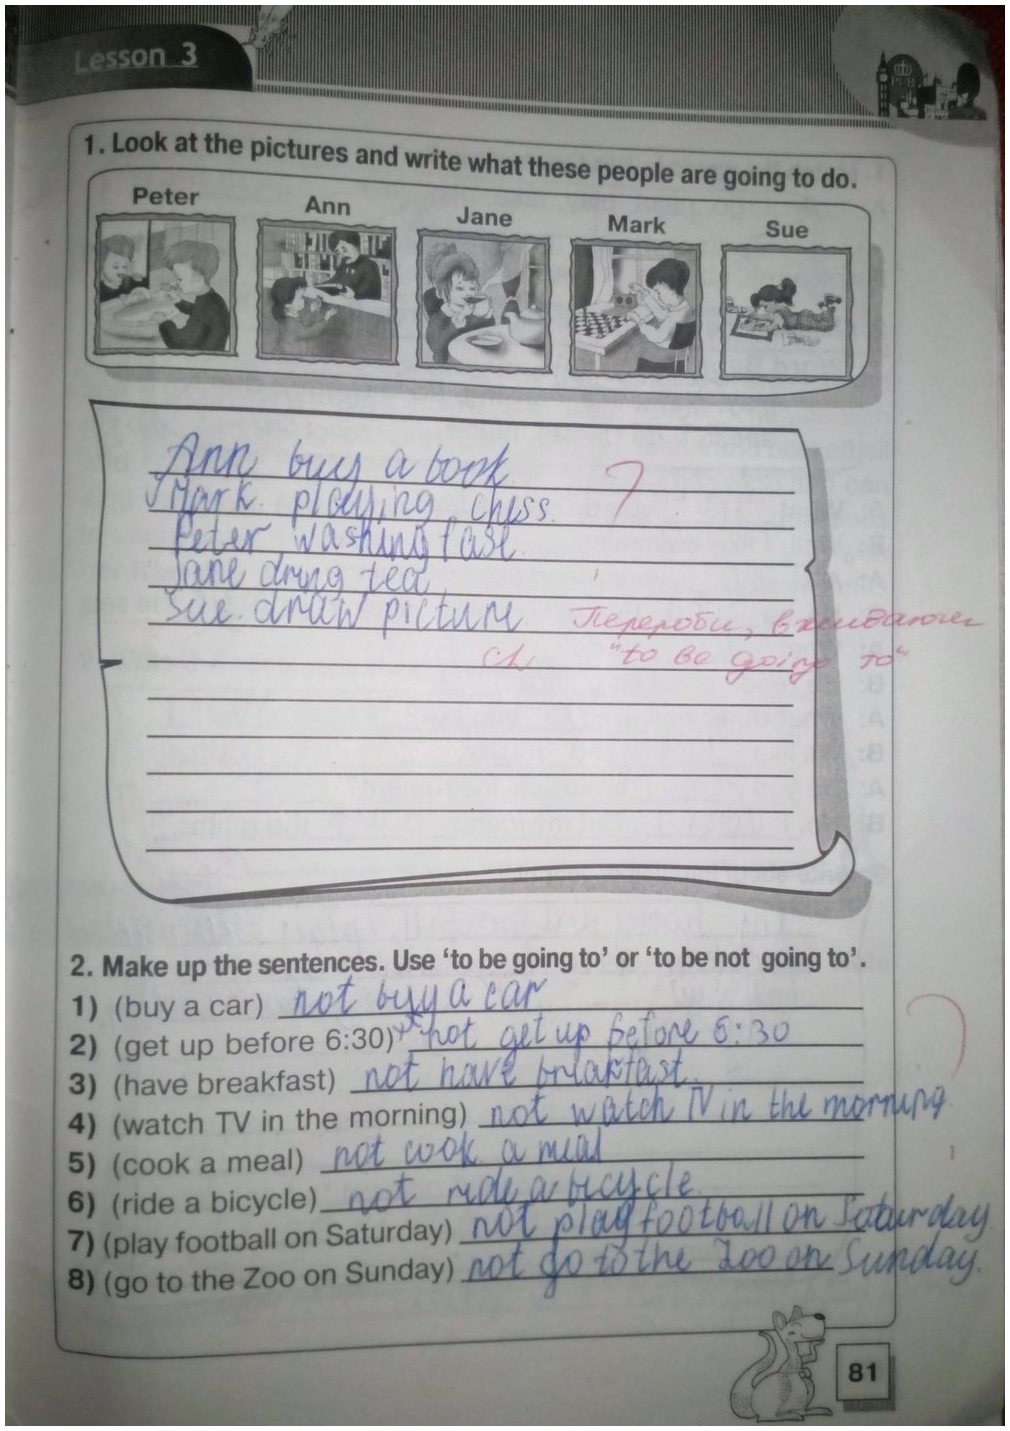 Lesson 3
1. Look at the pictures and write what these people are going to do.
Peter Ann Jane Mark Sue
Ann buy a book
Mark. playing chess.
Peter washing fase.
Jane dring tea
Sue. draw picture
Перероби, вживаючи
"to be going to"
2. Make up the sentences. Use ‘to be going to’ or ‘to be not going to’.
1) (buy a car) not buy a car
2) (get up before 6:30) not get up before 6:30
3) (have breakfast) not have breakfast.
4) (watch TV in the morning) not watch TV in the morning
5) (cook a meal) not cook a meal
6) (ride a bicycle) not ride a bicycle.
7) (play football on Saturday) not play football on Saturday
8) (go to the Zoo on Sunday) not go to the Zoo on Sunday.
81